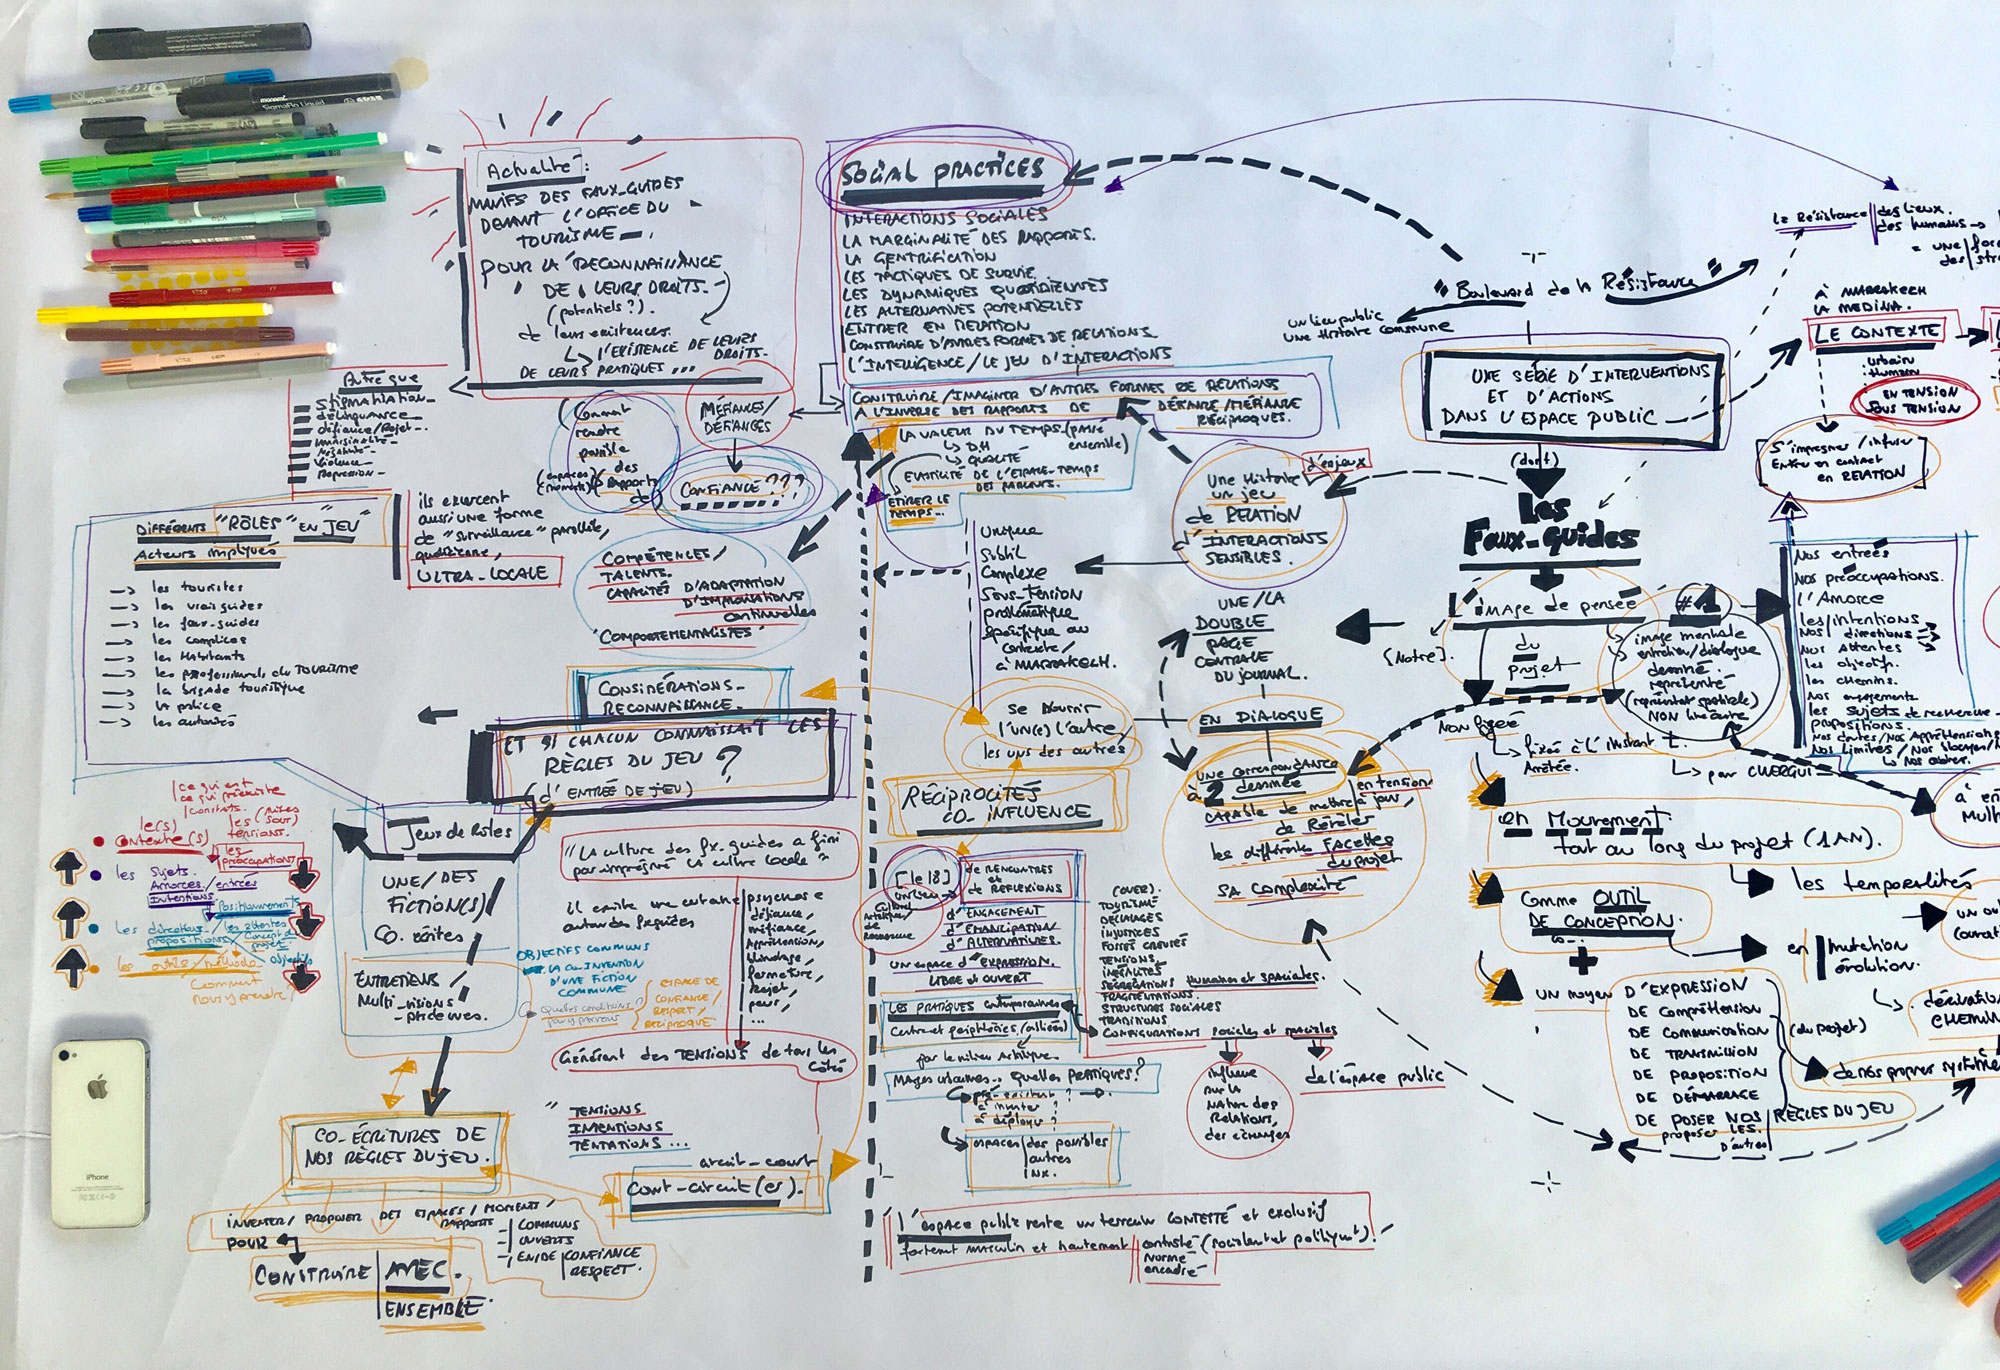 Actualité :
MANIFS DES FAUX-GUIDES
DEVANT L'OFFICE DU
TOURISME
POUR LA RECONNAISSANCE
DE LEURS DROITS
(potentiels?)
de leurs existences.
↳ L'EXISTENCE DE LEURS
DROITS.
DE LEURS PRATIQUES ...
SOCIAL PRACTICES
INTERACTIONS SOCIALES
LA MARGINALITÉ DES RAPPORTS.
LA GENTRIFICATION
LES TACTIQUES DE SURVIE.
LES DYNAMIQUES QUOTIDIENNES
LES ALTERNATIVES POTENTIELLES
ENTRER EN RELATION
CONSTRUIRE D'AUTRES FORMES DE RELATIONS.
L'INTELLIGENCE / LE JEU D'INTERACTIONS
CONSTRUIRE/IMAGINER D'AUTRES FORMES DE RELATIONS
À L'INVERSE DES RAPPORTS DE DÉFIANCE/MÉFIANCE
RÉCIPROQUES.
LA VALEUR DU TEMPS (passé
ensemble)
↳ DH
↳ QUALITÉ
DE L'ESPACE-TEMPS
ETIRER LE
TEMPS...
Autre que
STIGMATISATION
délinquance
défiance/Rejet
marginalité
Violence
Répression
Comment
rendre
possible
des
Rapports
de
(espaces)
(moments)
MÉFIANCES/
DÉFIANCES
CONFIANCE ???
ils exercent
aussi une forme
de "surveillance" parallèle,
quotidienne,
ULTRA-LOCALE
DIFFÉRENTS "RÔLES" "EN JEU"
Acteurs impliqués
→ les touristes
→ les vrais guides
→ les faux-guides
→ les complices
→ les Habitants
→ les professionnels du TOURISME
→ la brigade touristique
→ la police
→ les autorités
COMPÉTENCES/
TALENTS.
CAPACITÉS D'ADAPTATION
D'IMPROVISATIONS
continuelles
"COMPORTEMENTALISTES"
Unique
Subtil
Complexe
Sous-Tension
problématique
spécifique au
contexte/
à MARRAKECH.
d'enjeux
Une Histoire
un jeu
de RELATION
D'INTERACTIONS
SENSIBLES.
UNE/LA
DOUBLE
PAGE
CENTRALE
DU JOURNAL.
EN DIALOGUE
UNE CORRESPONDANCE
à 2 dessinée en tension
Capable de mettre à jour,
de Révéler
les différentes FACETTES
du projet
SA COMPLEXITÉ
"Boulevard de la Résistance"
un lieu public
une Histoire commune
UNE SÉRIE D'INTERVENTIONS
ET D'ACTIONS
DANS L'ESPACE PUBLIC
(dont)
Les
Faux-guides
+
IMAGE de pensée
du
projet
[Notre].
NON figée
↳ fixée à l'instant T.
Arrêtée.
#1
image mentale
entretien/dialogue
dessiné
représenté
NON linéaire
↳ par CHERGUI
La Résistance des lieux.
des humains →
= une
des
à MARRAKECH
LA MEDINA.
LE CONTEXTE
urbain
Humain
EN TENSION
SOUS TENSION
S'imprégner / infuser
Entrer en contact
en RELATION
Nos entrées
Nos préoccupations.
L'Amorce
les intentions
Nos directions
Nos Attentes
les objectifs.
les chemins.
Nos engagements
les SUJETS de recherche
propositions
Nos doutes/Nos Appréhensions
Nos limites / Nos
en Mouvement
tout au long du projet (1 AN).
les temporalités
Comme OUTIL
DE CONCEPTION.
+
en mutation
évolution.
UN moyen D'EXPRESSION
DE COMPRÉHENSION
DE COMMUNICATION
DE TRANSMISSION
DE PROPOSITION
DE DÉMARRAGE
DE POSER NOS RÈGLES DU JEU
proposer LES
D'autres
(du projet)
de nos propres
CONSIDÉRATIONS_
RECONNAISSANCE_
ET SI CHACUN CONNAISSAIT LES
RÈGLES DU JEU ?
(d'ENTRÉE DE JEU)
Se nourrir
l'un(e) l'autre
les uns des autres
RÉCIPROCITÉS
CO_INFLUENCE
Jeux de Rôles
UNE/DES
FICTION(S)
CO_écrites
ENTRETIENS/
Multi_visions
"La culture des fx-guides a fini
par imprégner la culture locale"
il existe une certaine psychose
autour des
défiance,
méfiance,
Appréhension,
blindage,
fermeture,
Rejet,
peur,
...
OBJECTIFS COMMUNS
D'UNE FICTION
COMMUNE
Quelles conditions?
ESPACE DE
CONFIANCE/
RESPECT
RÉCIPROQUE
Générant des TENSIONS de tous les
côtés
ce qui est
ce qui préexiste
constats.
le(s)
contexte(s)
les (mises
(sous)
tensions.
les
préoccupations
les Sujets
Amorces/entrées
Intentions
Positionnements
les directions/les attentes
propositions
objectifs
les outils/méthodo
Comment
nous y prendre/
iPhone
CO-ÉCRITURES DE
NOS RÈGLES DU JEU.
"TENSIONS
INTENTIONS
TENTATIONS ...
circuit-court
Court-circuit(er).
INVENTER/PROPOSER DES ESPACES/MOMENTS
RAPPORTS
COMMUNS
OUVERTS
CONFIANCE
RESPECT.
POUR
CONSTRUIRE AVEC.
ENSEMBLE
[le 18]
un lieu
Culturel
Artistique
de
Recherche
de RENCONTRES
et
de RÉFLEXIONS
d'ENGAGEMENT
d'ÉMANCIPATION
d'ALTERNATIVES.
UN ESPACE D'EXPRESSION
LIBRE ET OUVERT
LES PRATIQUES contemporaines
Centre et périphéries
par le milieu Artistique
QUELLES PRATIQUES?
pré-existant ?
à inventer ?
à déployer ?
espaces des possibles
autres
INX.
(OVER).
TOURISME
DÉCALAGES
INJUSTICES
FOSSÉ CREUSÉ
TENSIONS,
INÉGALITÉS
SÉGRÉGATIONS Humaines et spaciales.
FRAGMENTATIONS.
STRUCTURES SOCIALES
TRADITIONS
CONFIGURATIONS sociales et spaciales
influence
sur la
Nature des
Relations,
des échanges
de l'espace public
"L'espace public reste un terrain CONTESTÉ et exclusif
fortement masculin et hautement contrôlé (socialement et politiquement)."
normé
encadré